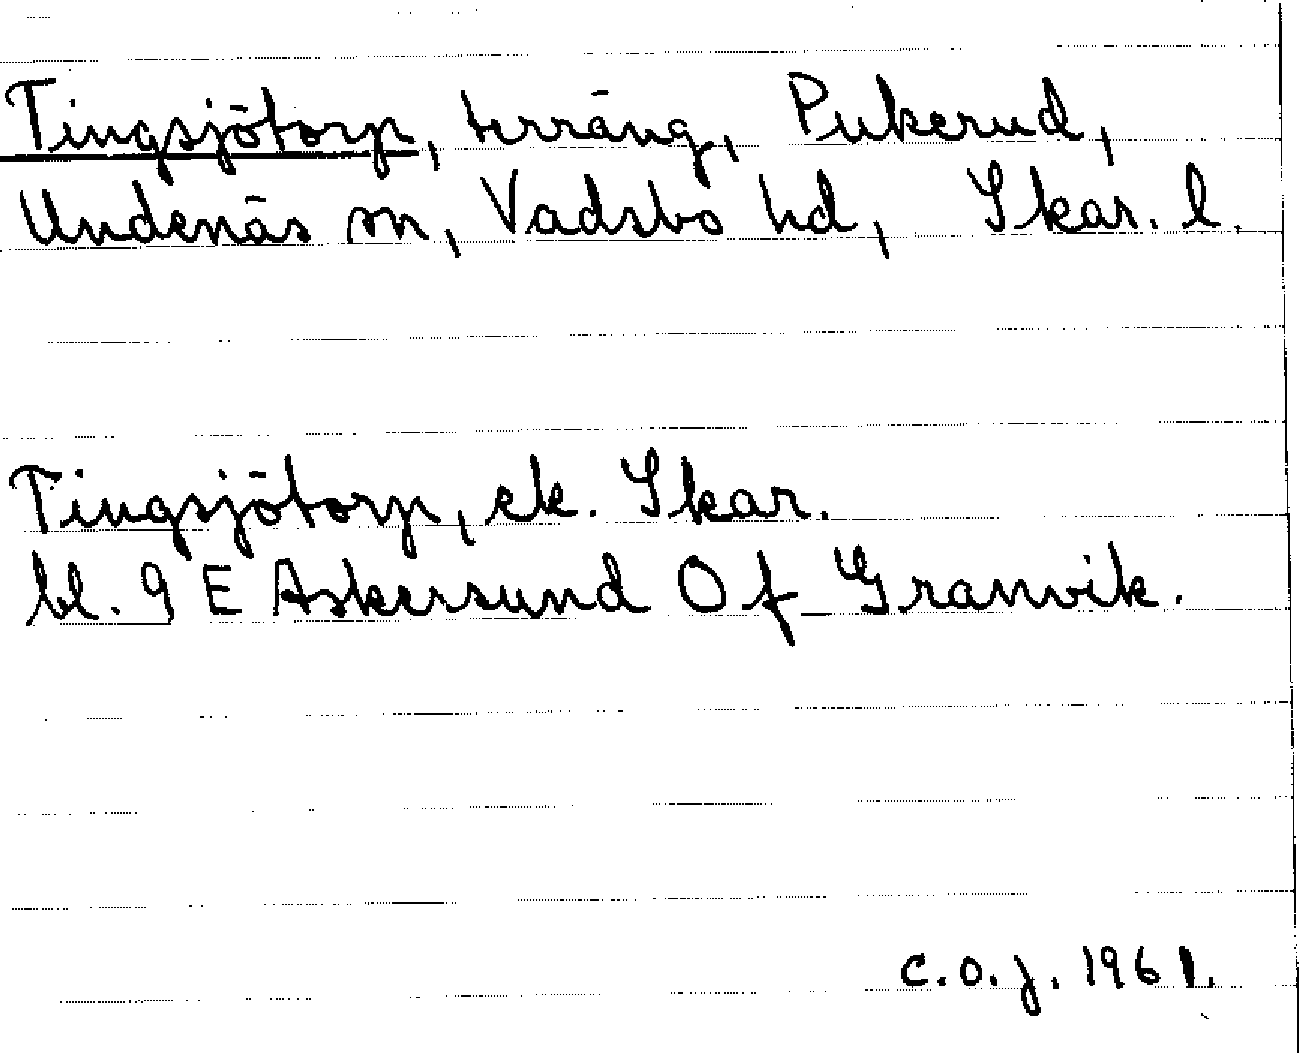 Tingsjötorp, terräng, Pukerud,
Undenäs sn, Vadsbo hd, Skar. l.
Tingsjötorp, ek. Skar.
bl. 9 E Askersund O f Granvik.
C.O.J. 1961.